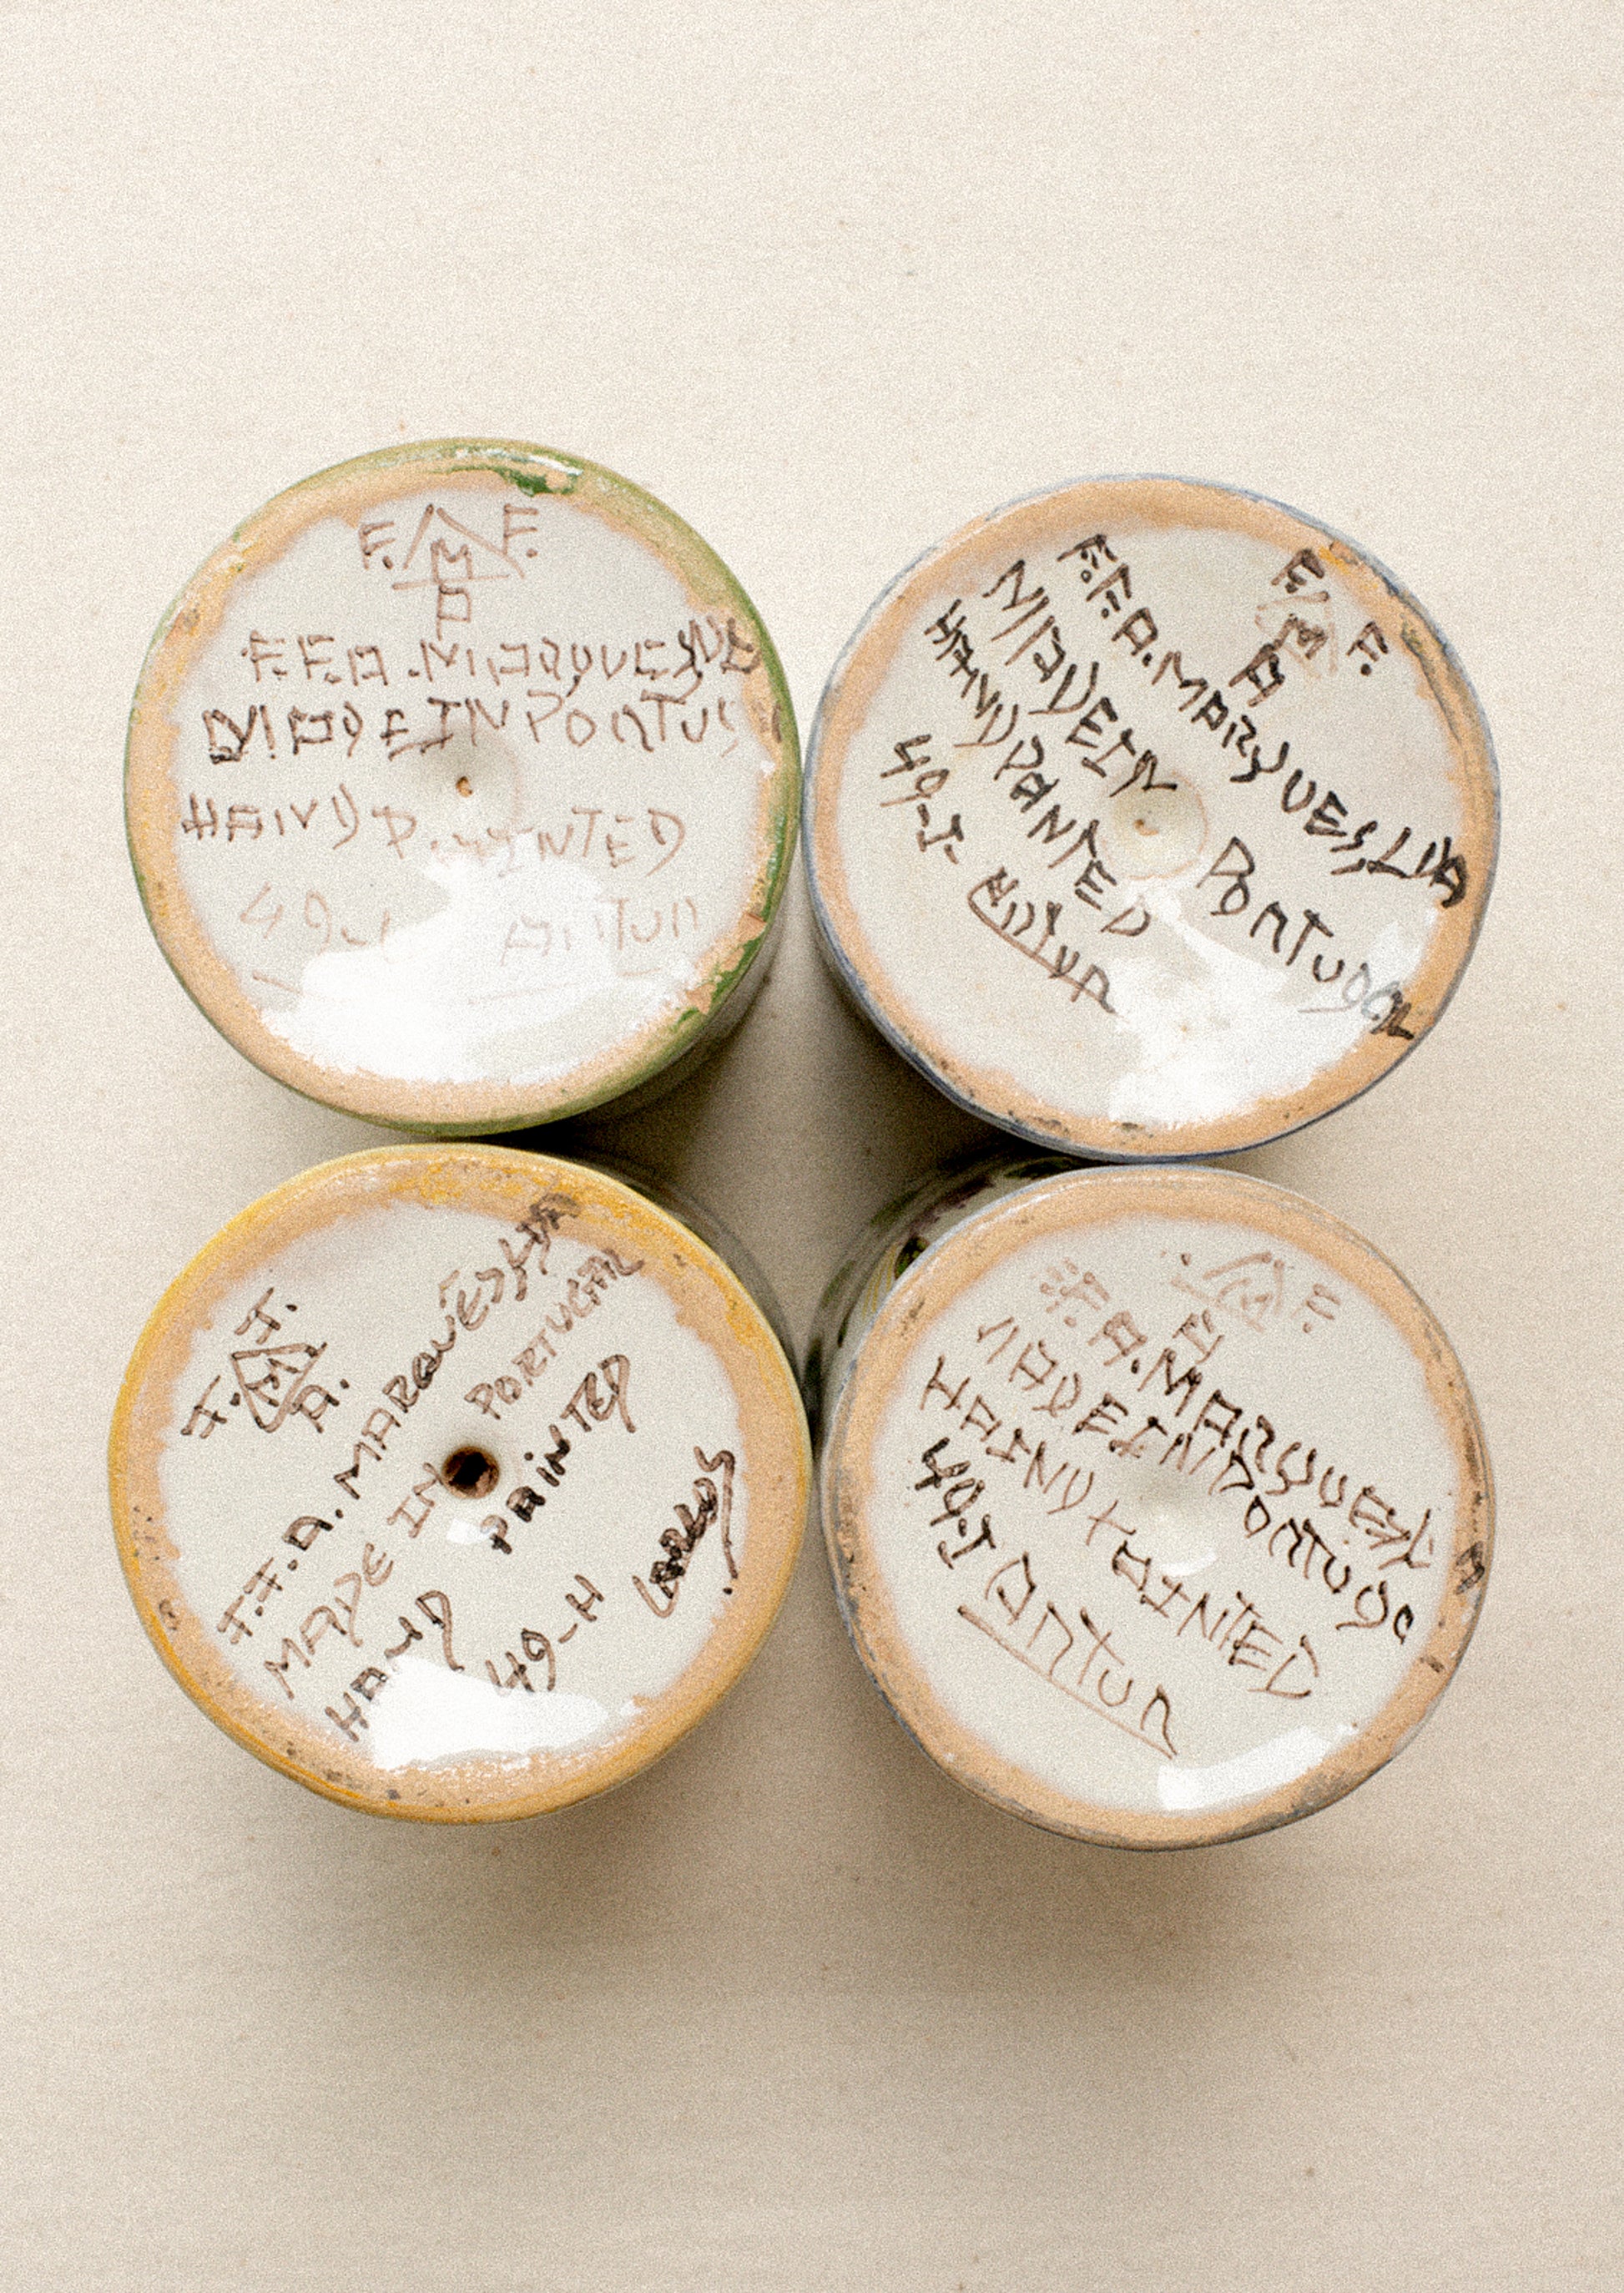 F. M F.
A
F.F.A. MARQUES, LDA
MADE IN PORTUG
HAND PAINTED
49-I ARTUR
F. M F.
A
F.F.A. MARQUES, LDA
MADE IN PORTUGAL
HAND PAINTED
49-I- ARTUR
F. M F.
A.
F.F.A. MARQUES, LDA
MADE IN PORTUGAL
HAND PAINTED
49-H CARLOS
M F.
A
F.A. MARQUES, L
MADE IN PORTUGA
HAND PAINTED
49-I ARTUR